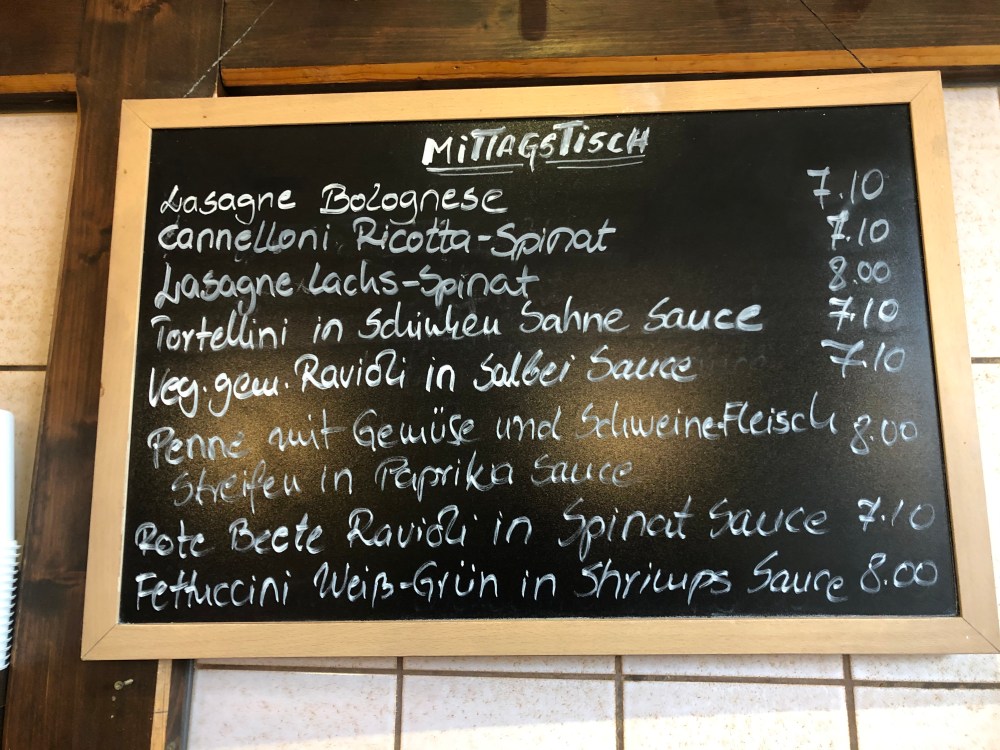 MITTAGSTISCH
Lasagne Bolognese 7.10
Cannelloni Ricotta-Spinat 7.10
Lasagne Lachs-Spinat 8.00
Tortellini in Schinken Sahne Sauce 7.10
Veg. gem. Ravioli in Salbei Sauce 7.10
Penne mit Gemüse und Schweinefleisch 8.00
Streifen in Paprika Sauce
Rote Beete Ravioli in Spinat Sauce 7.10
Fettuccini Weiß-Grün in Shrimps Sauce 8.00